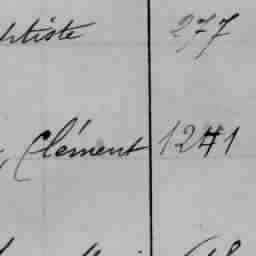 ptiste 277
, Clément 1241